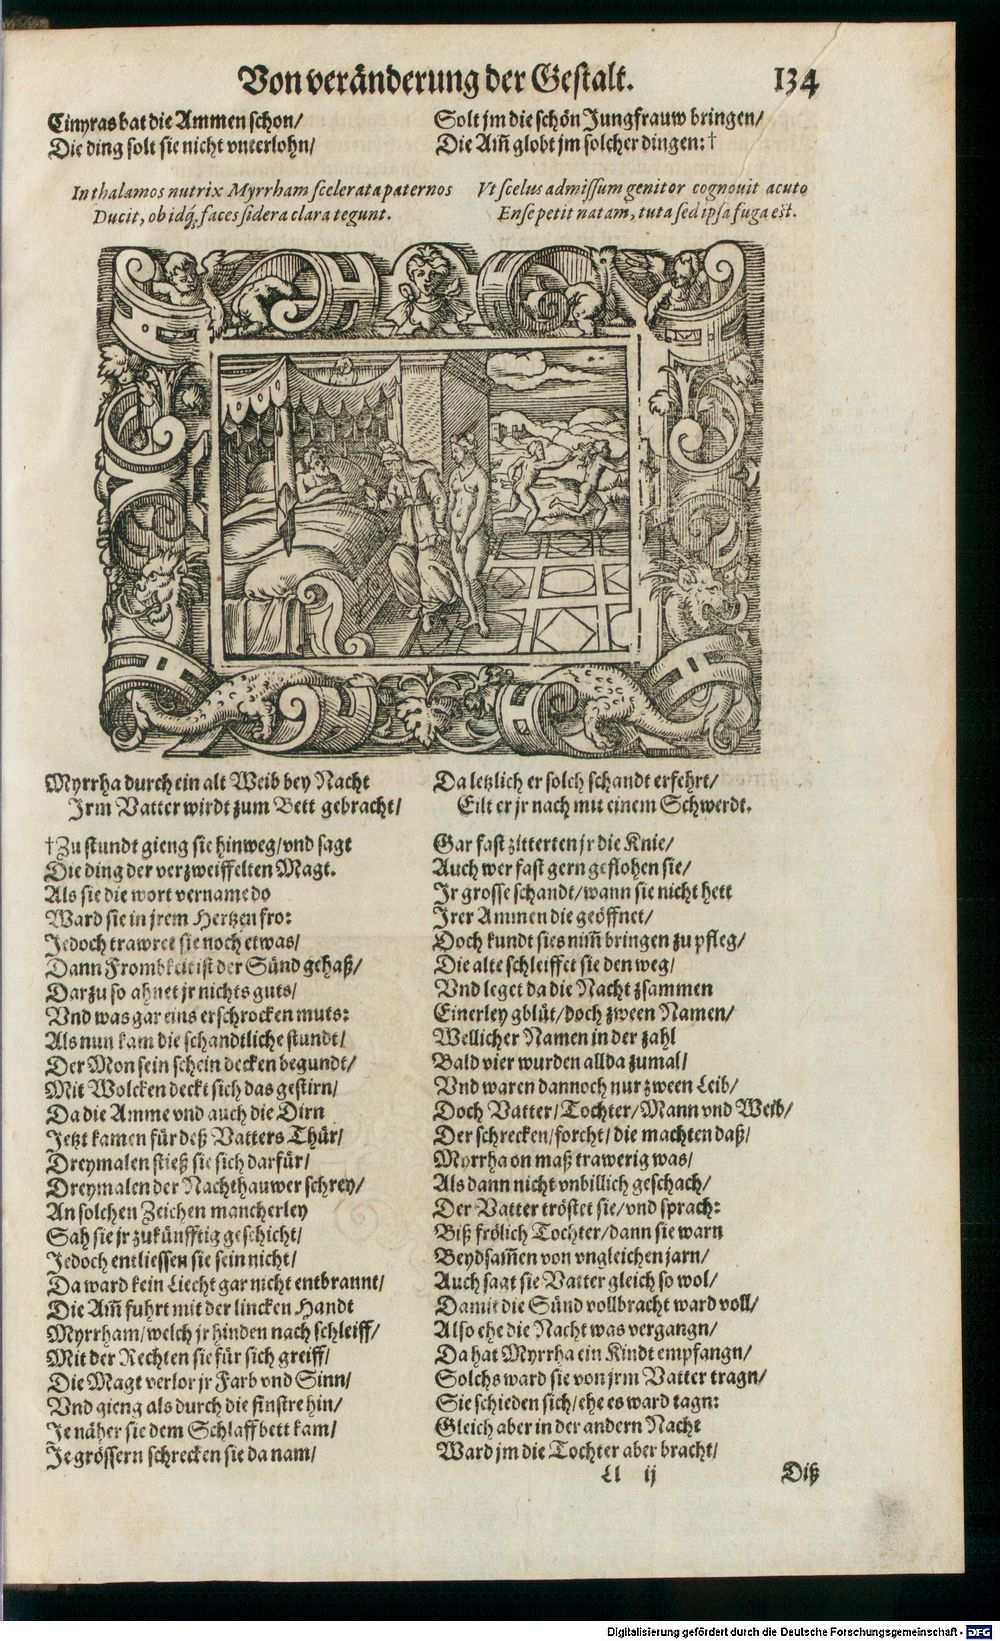 Von veränderung der Gestalt.
134
Cinyras bat die Ammen schon/
Die ding solt sie nicht vnterlohn/
Solt jm die schön Jungfrauw bringen/
Die Am̃ globt jm solcher dingen: †
In thalamos nutrix Myrrham scelerata paternos
Ducit, ob idq́; faces sidera clara tegunt.
Vt scelus admissum genitor cognouit acuto
Ense petit natam, tuta sed ipsa fuga est.
Myrrha durch ein alt Weib bey Nacht
Irm Vatter wirdt zum Bett gebracht/
Da letzlich er solch schandt erfehrt/
Eilt er jr nach mit einem Schwerdt.
† Zu stundt gieng sie hinweg/vnd sagt
Die ding der verzweiffelten Magt.
Als sie die wort vername do
Ward sie in jrem Hertzen fro:
Jedoch trawret sie noch etwas/
Dann Frombkeit ist der Sünd gehaß/
Darzu so ahnet jr nichts guts/
Vnd was gar eins erschrocken muts:
Als nun kam die schandtliche stundt/
Der Mon sein schein decken begundt/
Mit Wolcken deckt sich das gestirn/
Da die Amme vnd auch die Dirn
Jetzt kamen für deß Vatters Thür/
Dreymalen stieß sie sich darfür/
Dreymalen der Nachthauwer schrey/
An solchen Zeichen mancherley
Sah sie jr zukünfftig geschicht/
Jedoch entliessen sie sein nicht/
Da ward kein Liecht gar nicht entbrannt/
Die Am̃ fuhrt mit der lincken Handt
Myrrham/welch jr hinden nach schleiff/
Mit der Rechten sie für sich greiff/
Die Magt verlor jr Farb vnd Sinn/
Vnd gieng als durch die finstre hin/
Je näher sie dem Schlaffbett kam/
Je grössern schrecken sie da nam/
Gar fast zitterten jr die Knie/
Auch wer fast gern geflohen sie/
Ir grosse schandt/wann sie nicht hett
Irer Ammen die geöffnet/
Doch kundt sies nim̃ bringen zu pfleg/
Die alte schleiffet sie den weg/
Vnd leget da die Nacht zsammen
Einerley gblüt/doch zween Namen/
Wellicher Namen in der zahl
Bald vier wurden allda zumal/
Vnd waren dannoch nur zween Leib/
Doch Vatter/Tochter/Mann vnd Weib/
Der schrecken/forcht/die machten daß/
Myrrha on maß trawerig was/
Als dann nicht vnbillich geschach/
Der Vatter tröstet sie/vnd sprach:
Biß frölich Tochter/dann sie warn
Beydsam̃en von vngleichen jarn/
Auch sagt sie Vatter gleich so wol/
Damit die Sünd vollbracht ward voll/
Also ehe die Nacht was vergangn/
Da hat Myrrha ein Kindt empfangn/
Solchs ward sie von jrm Vatter tragn/
Sie schieden sich/ehe es ward tagn:
Gleich aber in der andern Nacht
Ward jm die Tochter aber bracht/
Ll ij
Diß
Digitalisierung gefördert durch die Deutsche Forschungsgemeinschaft - DFG